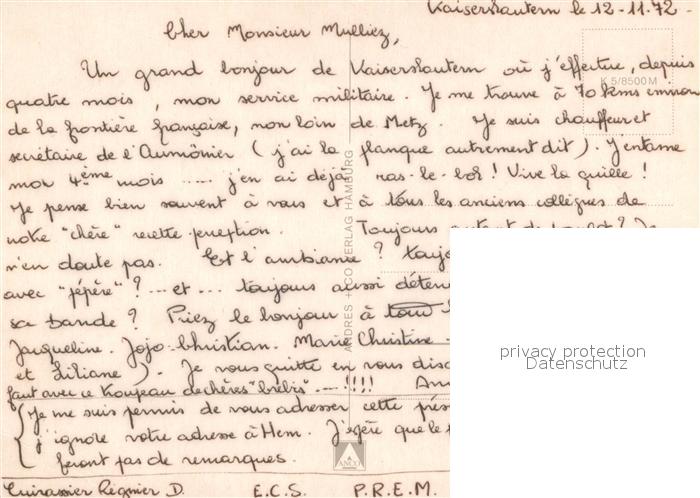 Kaiserslautern le 12-11.72 -
Cher Monsieur Mulliez,
Un grand bonjour de Kaiserslautern où j'effectue, depuis
K 5/8500 M
quatre mois, mon service militaire. Je me trouve à 70 kms environ
de la frontière française, non loin de Metz. Je suis chauffeur et
secrétaire de l'Aumônier ( j'ai la planque autrement dit ). J'entame
mon 4ème mois ..... j'en ai déjà ras-le-bol ! Vive la quille !
Je pense bien souvent à vous et à tous les anciens collègues de
notre "chère" recette-perception. Toujours autant de boulot ? Je
n'en doute pas. Et l'ambiance ?
avec "pépère" ? ... et ... toujours aussi
sa bande ? Priez le bonjour à
Jacqueline. Jojo. Christian. Marie Christine -
et Liliane ). Je vous quitte en vous
faut avec ce troupeau de chères "brebis" .... !!!!
Je me suis permis de vous adresser cette
j'ignore votre adresse à Hem. J'espère que le
feront pas de remarques.
Cuirassier Régnier D. E.C.S. P.R.E.M.
ANDRES + CO VERLAG HAMBURG
ANCO
privacy protection
Datenschutz